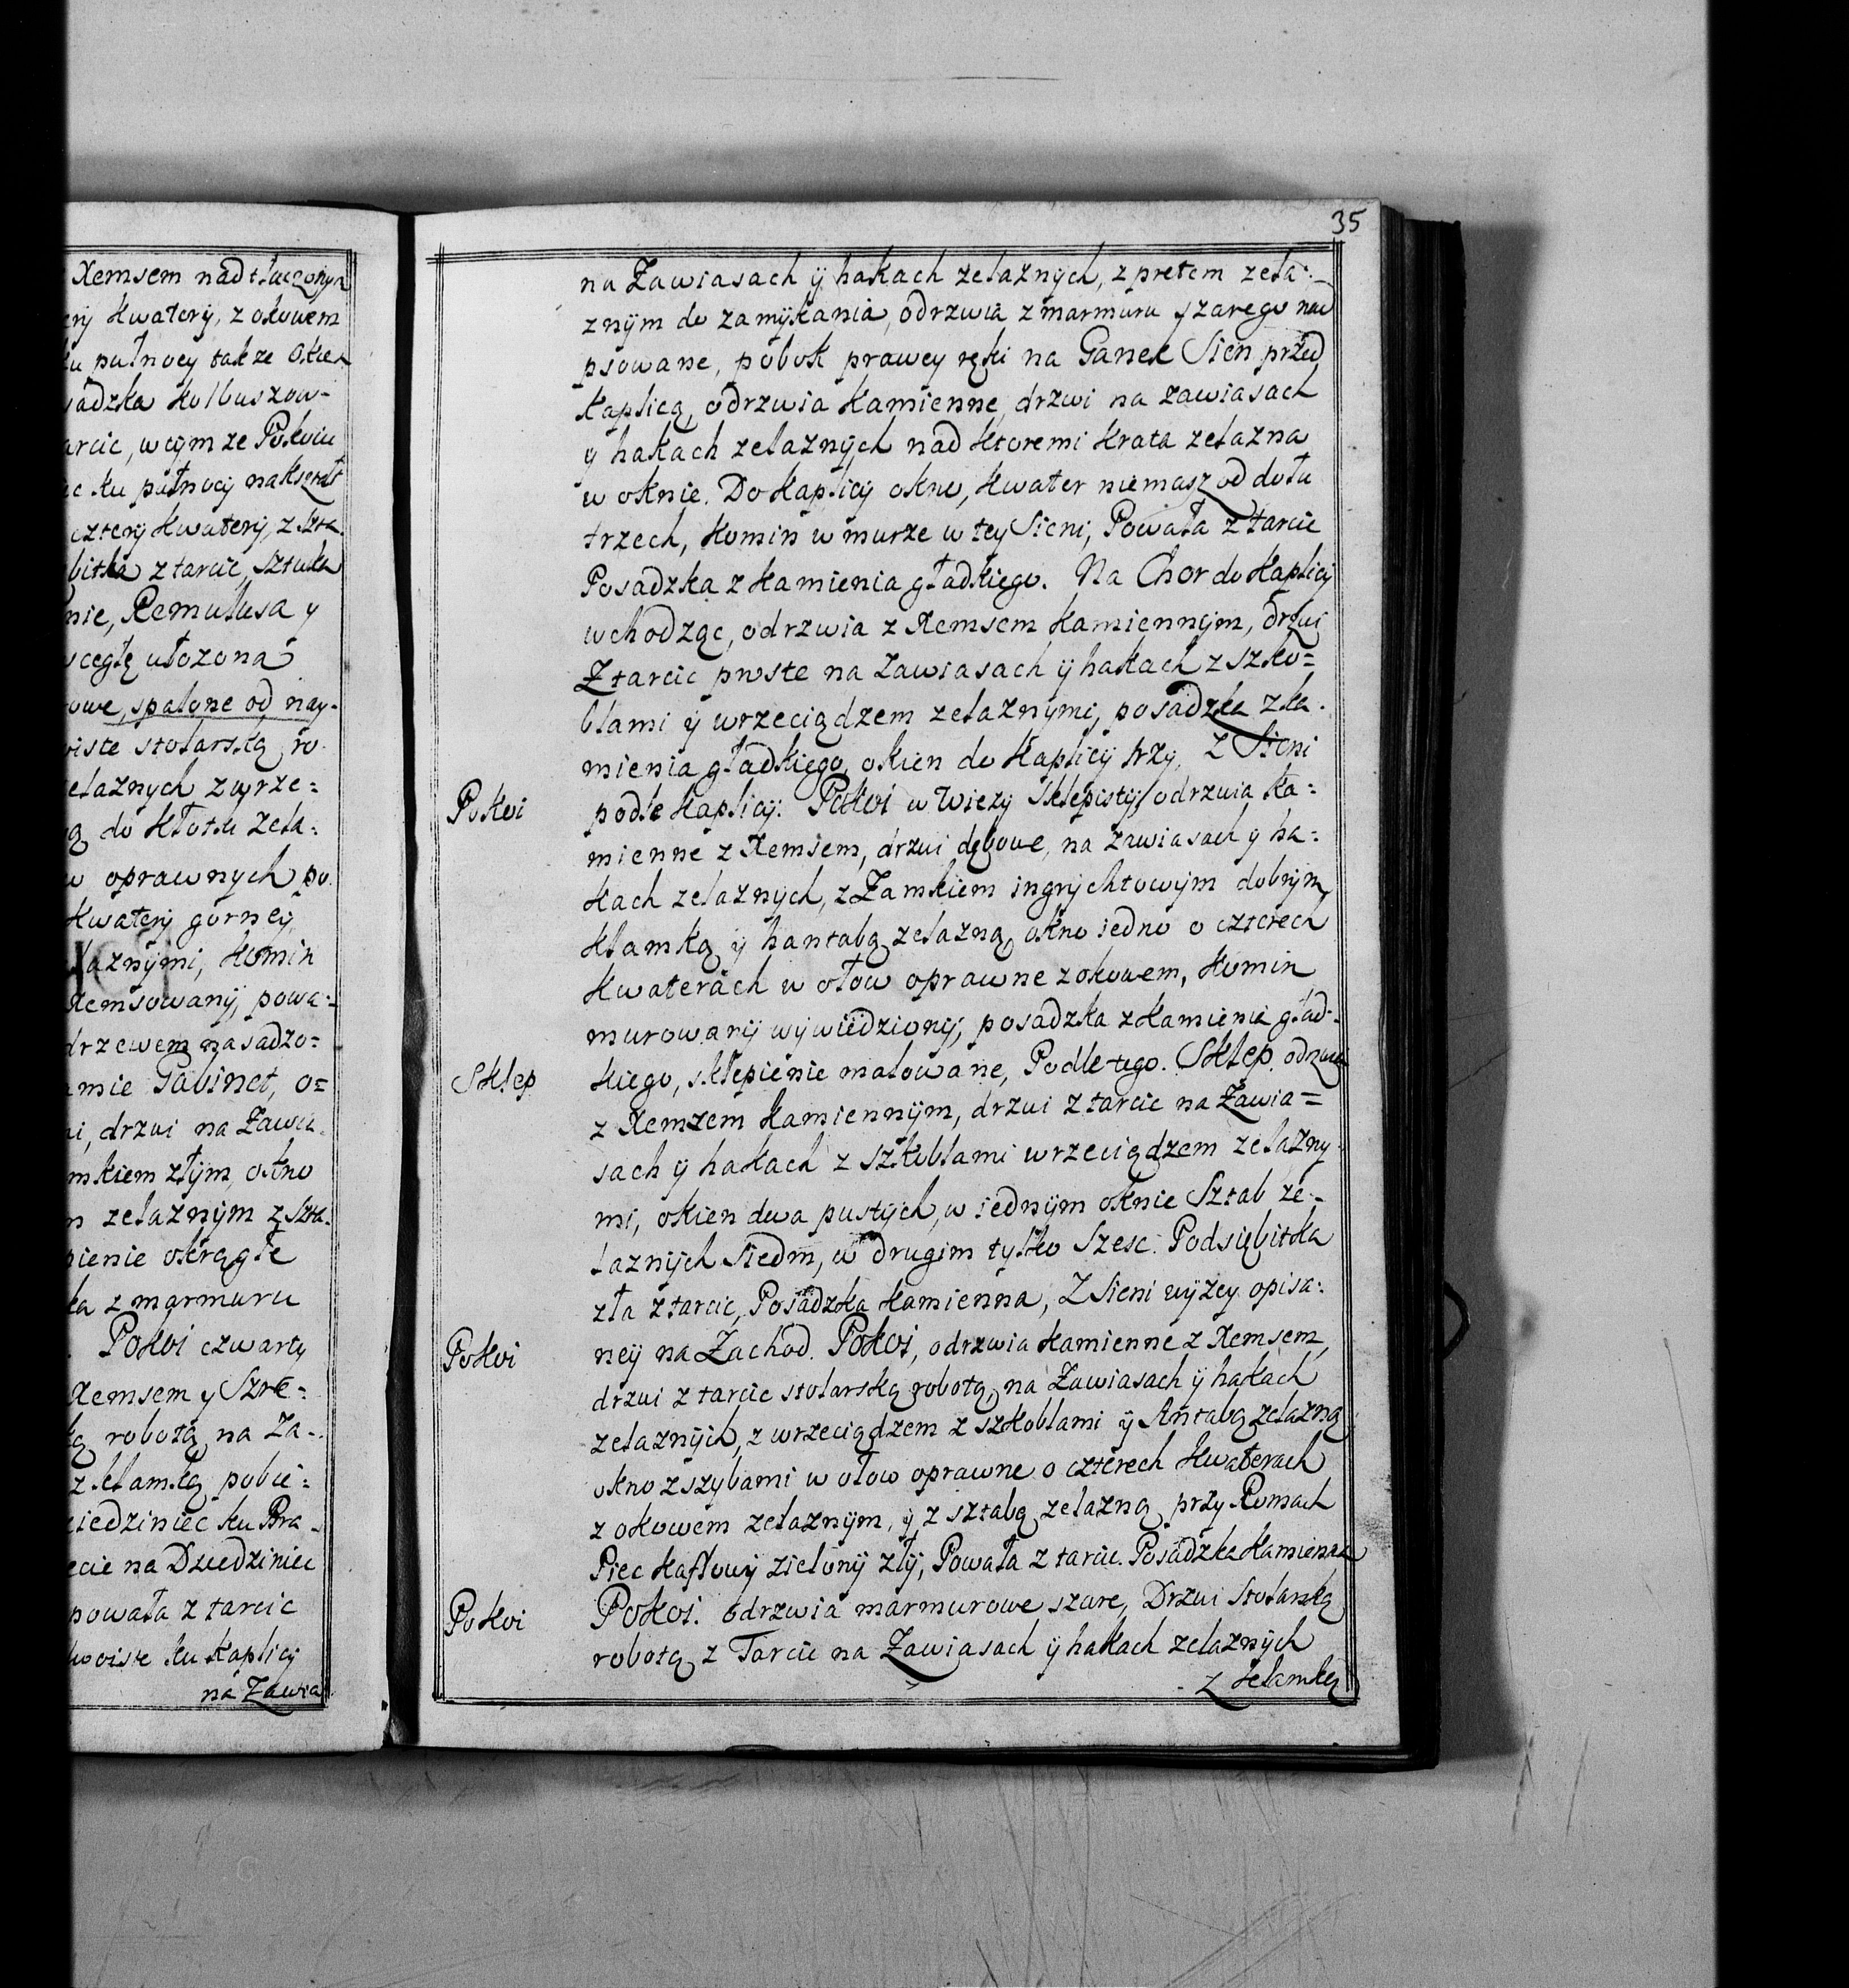 Xemsem nad tłuczonym
kwatery, z okowem
pułnocy takze Okien
Kolbuszow-
w tym ze Pokoiu
ku pułnocy nakształt
cztery kwatery, z szta.
z tarcic, sztuka
Remulusa y
cegłę ułozona
spalone od nay-
stolarską ro-
zelaznych z wrze=
do kłotu zela=
w oprawnych po
kwatery gorney
komin
Xemsowany, powa=
drzewem nasadzo=
Gabinet, o=
drzwi na Zawia.
złym, okno
zelaznym z szta.
okrągłe
z marmuru
Pokoi czwarty
Xemsem y Szre=
robotą na Za-
z klamką pobie=
ku Bra-
na Dziedziniec
powała z tarcic
ku Kaplicy
na Zawia
35
na Zawiasach ÿ hakach zelaznych, z prętem zela=
znÿm do zamÿkania, odrzwia z marmuru szarego nad
psowane, pobok prawey ręki na Ganek Sien przed
Kaplicą, odrzwia Kamienne, drzwi na zawiasach
y hakach zelaznÿch nad ktoremi Krata zelazna
w oknie. Do Kaplicÿ okno, Kwater niemasz od dołu
trzech, Komin w murze w tey Sieni, Powała z tarcic
Posadzka z Kamienia gładkiego. Na Chor do Kaplicÿ
wchodząc, odrzwia z Xemsem Kamiennÿm, drzwi
Z tarcic proste na Zawiasach ÿ hakach z szko=
blami ÿ wrzeciądzem zelaznÿmi, posadzka z ka-
mienia gładkiego, okien do Kaplicÿ trzy, Z Sieni
Pokoi
podle Kaplicÿ: Pokoi w Wiezy Sklepistÿ odrzwia Ka=
mienne z Xemsem, drzwi dębowe, na Zawiasach y ha=
kach zelaznych, z Zamkiem ingrychtowÿm dobrÿm,
klamką ÿ hantabą zelazną, okno iedno o czterech
Kwaterach w ołow oprawne z okowem, Komin
murowanÿ wÿwiedzionÿ, posadzka z Kamienia gład-
Sklep
kiego, sklepienie malowane, Podle tego. Sklep. odrzwia
z Xemzem Kamiennÿm, drzwi z tarcic na Zawia=
sach ÿ hakach z szkoblami wrzeciądzem zelazny-
mi, okien dwa pustÿch, w iednÿm oknie Sztab ze-
laznÿch Siedm, w drugim tylko Szesc. Podsiębitka
zła z tarcic, Posadzka Kamienna, Z Sieni wÿzey opisa=
Pokoi
neÿ na Zachod. Pokoi, odrzwia Kamienne z Xemsem,
drzwi z tarcic stolarską robotą, na Zawiasach ÿ hakach
zelaznÿch, z wrzeciądzem z szkoblami ÿ Antabą zelazną
okno z szybami w ołow oprawne o czterech Kwaterach
z okowem zelaznÿm, ÿ z sztabą zelazną przy Romach
Piec Kaflowy zielonÿ złÿ, Powała z tarcic. Posadzka Kamienna
Pokoi
Pokoi. odrzwia marmurowe szare, Drzwi Stolarską
robotą z Tarcic na Zawiasach ÿ hakach zelaznÿch
z klamką